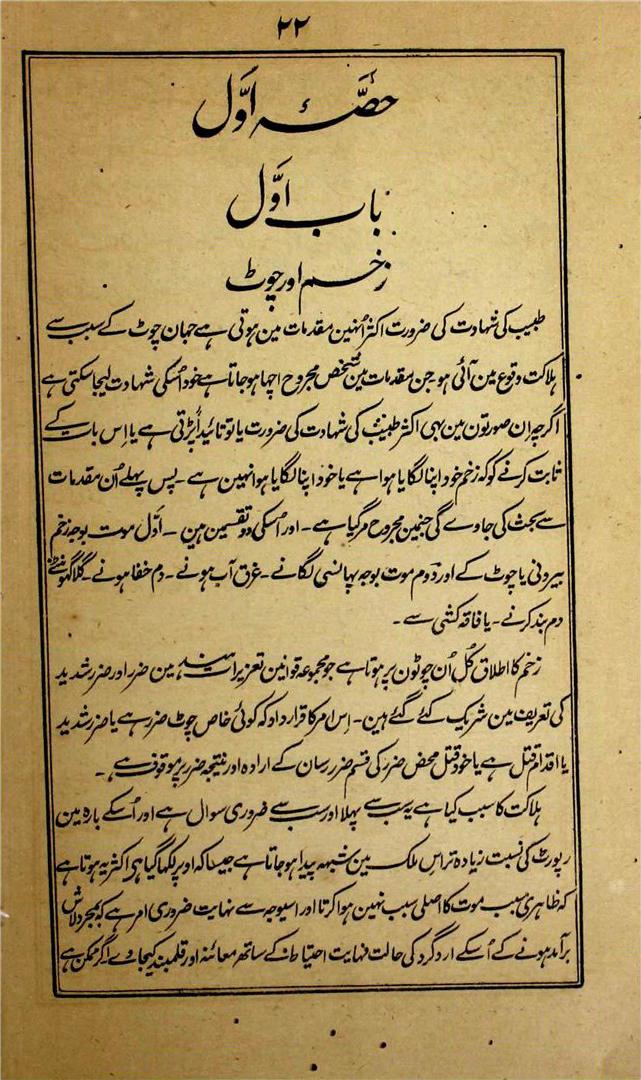 ۲۲
حصّۂ اوّل
باب اوّل
زخم اور چوٹ
طبیب کی شہادت کی ضرورت اکثر اُنہین مقدمات مین ہوتی ہے جہان چوٹ کے سبب سے
ہلاکت وقوع مین آئی ہو جن مقدمات مین شخص مجروح اچہا ہو جاتا ہے خود اُسکی شہادت لیجا سکتی ہے
اگرچہ ان صورتون مین بہی اکثر طبیب کی شہادت کی ضرورت یا تو تائیداً پڑتی ہے یا اِس بات کے
ثابت کرنے کو کہ زخم خود اپنا لگایا ہوا ہے یا خود اپنا لگایا ہوا نہین ہے ۔ پس پہلے اُن مقدمات
سے بحث کی جاوے گی جنمین مجروح مر گیا ہے ۔ اور اُسکی دو قسمین ہین ۔ اوّل موت بوجہ زخم
بیرونی یا چوٹ کے اور دوم موت بوجہ پہانسی لگانے ۔ غرق آب ہونے ۔ دم خفا ہونے ۔ گلا گہونٹنے
دم بند کرنے ۔ یا فاقہ کشی سے ۔
زخم کا اطلاق کُل اُن چوٹون پر ہوتا ہے جو مجموعہ قوانین تعزیرات ہند مین ضرر اور ضرر شدید
کی تعریف مین شریک کئے گئے ہین ۔ اِس امر کا قرار داد کہ کوئی خاص چوٹ ضرر ہے یا ضرر شدید
یا اقدام قتل ہے یا خود قتل محض ضرر کی قسم ضرر رسان کے ارادہ اور نتیجہ ضرر پر موقوف ہے ۔
ہلاکت کا سبب کیا ہے یہ سب سے پہلا اور سب سے ضروری سوال ہے اور اُسکے بارہ مین
رپورٹ کی نسبت زیادہ تر اس ملک مین شبہہ پیدا ہو جاتا ہے جیسا کہ اوپر لکہا گیا ہی اکثر یہ ہوتا ہے
کہ ظاہری سبب موت کا اصلی سبب نہین ہوا کرتا اور اسیوجہ سے نہایت ضروری امر ہے کہ بمجرد لاش
برآمد ہونے کے اُسکے ارد گرد کی حالت نہایت احتیاط کے ساتھ معائنہ اور قلمبند کیجاوے اگر ممکن ہے